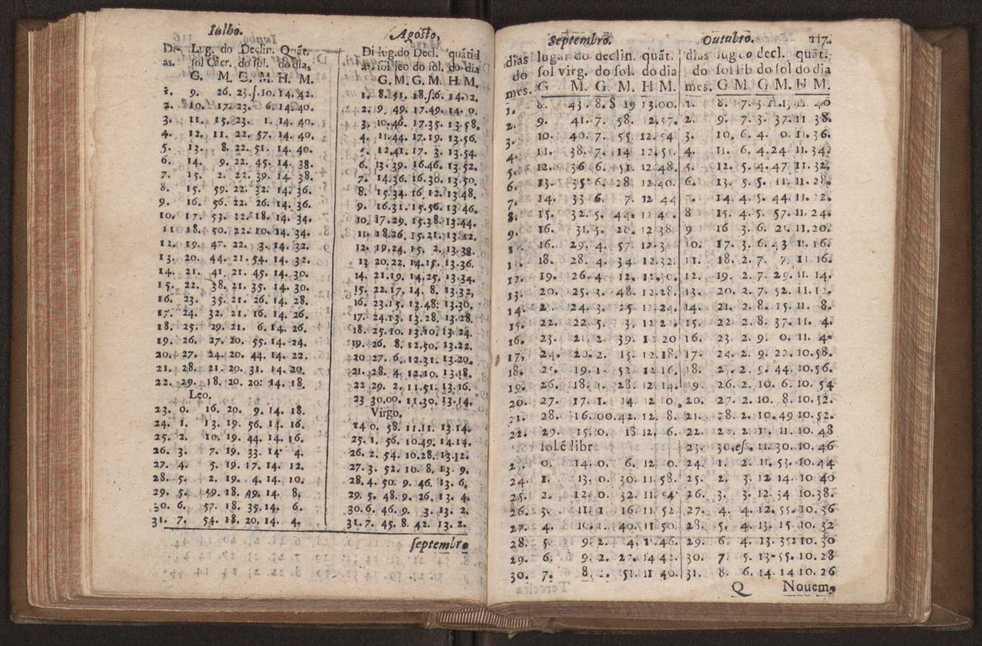 Iulho.
Di- Lug. do Declin. Quãt.
as. sol Cãcr. do sol. do dia.
G. M. G. M. H. M.
1. 9. 26. 23. 10. 14. 42.
2. 10. 17. 23. 6. 14. 40.
3. 11. 15. 23. 1. 14. 40.
4. 12. 11. 22. 57. 14. 40.
5. 13. 8. 22. 51. 14. 40.
6. 14. 9. 22. 45. 14. 38.
7. 15. 2. 22. 39. 14. 38.
8. 15. 59. 22. 32. 14. 36.
9. 16. 56. 22. 26. 14. 36.
10. 17. 53. 22. 18. 14. 34.
11. 18. 50. 22. 10. 14. 34.
12. 19. 47. 22. 3. 14. 32.
13. 20. 44. 21. 54. 14. 32.
14. 21. 41. 21. 45. 14. 30.
15. 22. 38. 21. 35. 14. 30.
16. 23. 35. 21. 26. 14. 28.
17. 24. 32. 21. 16. 14. 26.
18. 25. 29. 21. 6. 14. 26.
19. 26. 27. 20. 55. 14. 24.
20. 27. 24. 20. 44. 14. 22.
21. 28. 21. 20. 31. 14. 20.
22. 29. 18. 20. 20. 14. 18.
Leo.
23. 0. 16. 20. 9. 14. 18.
24. 1. 13. 19. 56. 14. 16.
25. 2. 10. 19. 44. 14. 16.
26. 3. 7. 19. 33. 14. 4.
27. 4. 5. 19. 17. 14. 12.
28. 5. 2. 19. 4. 14. 10.
29. 5. 59. 18. 49. 14. 8.
30. 6. 57. 18. 35. 14. 6.
31. 7. 54. 18. 20. 14. 4.
Agosto,
Di lug. do Decl. quãti
as. sol leo do sol. do dia
G. M. G. M. H M.
1. 8. 51. 18. 6. 14. 2.
2. 9. 49. 17. 49. 14. 0.
3. 10. 46. 17. 35. 13. 58.
4. 11. 44. 17. 19. 13. 56.
5. 12. 41. 17. 3. 13. 54.
6. 13. 39. 16. 46. 13. 52.
7. 14. 36. 16. 30. 13. 50.
8. 15. 34. 16. 12. 13. 48.
9. 16. 31. 15. 56. 13. 46.
10. 17. 29. 15. 38. 13. 44.
11. 18. 26. 15. 21. 13. 12.
12. 19. 24. 15. 2. 13. 38.
13. 20. 22. 14. 15. 13. 36.
14. 21. 19. 14. 25. 13. 34.
15. 22. 17. 14. 8. 13. 32.
16. 23. 15. 13. 48. 13. 30.
17. 24. 13. 13. 28. 13. 28.
18. 25. 10. 13. 10. 13. 24.
19. 26. 8. 12. 50. 13. 22.
20. 27. 6. 12. 31. 13. 20.
21. 28. 4. 12. 10. 13. 18.
22. 29. 2. 11. 51. 13. 16.
23. 30. 00. 11. 30. 13. 14.
Virgo.
24. 0. 58. 11. 11. 13. 14.
25. 1. 56. 10. 49. 14. 14.
26. 2. 54. 10. 28. 13. 12.
27. 3. 52. 10. 8. 13. 9.
28. 4. 50. 9. 46. 13. 6.
29. 5. 48. 9. 26. 13. 4.
30. 6. 46. 9. 3. 13. 2.
31. 7. 45. 8. 42. 13. 2.
septembro
Septembro.
dias lugar do declin. quãt.
do sol virg. do sol. do dia
mes. G. M. G. M. H. M.
1. 8. 43. 8. 19 13. 00.
2. 9. 41. 7. 58. 12. 57.
3. 10. 40. 7. 55 12. 54
4. 11. 38. 7. 14 12. 51.
5. 12. 36 6. 51 12. 48.
6. 13. 35 6. 28 12. 40.
7. 14. 33 6. 7. 12 44
8. 15. 32. 5. 44.
9. 16. 31. 5. 20. 12 38
16. 29. 4. 57
18. 28. 4. 34 12. 32.
19. 26. 4
13. 20. 25. 3. 48. 12. 28.
24. 3. 25
15. 22. 22 5. 3
16. 23. 21. 2. 39.
17. 24. 20. 2. 15. 12. 18.
18. 25. 19. 1. 52 12 16.
19. 26. 18. 1. 28. 12 14.
20. 27. 17. 1. 14
28. 16. 00. 42. 12. 8.
22. 29. 15. 0. 18 12. 6.
sol ẽ libr
0. 14. 0. 6. 12 0.
24. 1. 13. 0. 30. 11. 58.
25. 2. 12. 0. 32. 11
26. 3. 11. 1 16. 11 52
27. 4. 10. 1. 40. 11 50
28. 5. 9. 2. 4 1. 46.
29. 6. 9. 2.
30. 7. 8. 51. 11 40.
Outubro. 117.
dias lug co decl. quãt.
do sol lib do sol do dia
mes. G M G. M. H M
1. 8. 7. 3
2. 9. 7. 3. 37. 11 38.
3. 10. 6. 4. 0 11. 36.
4. 11. 6. 4. 24 11. 34.
5. 12. 5. 4. 47 11. 32.
6. 13. 5. 5. 11. 11. 28.
7. 14. 4. 5. 44. 11.
8 15. 4. 5. 57. 11. 24.
9 16 3. 6. 21. 11. 20.
10. 17. 3. 6. 43 11. 16.
11. 18. 2. 7. 7 11 16.
12. 19. 2. 7. 29. 11. 14.
13. 20. 2. 7. 52. 11. 12.
14. 21. 2. 8. 15. 11. 8.
15. 22 2. 8. 37. 11. 4.
16. 23. 2. 9. 0. 11. 4.
17. 24. 2. 9. 22. 10. 58.
18. 2. 44. 10. 56.
19. 26. 2. 10. 6. 10. 54
20. 27. 2. 10. 8. 10. 52.
21. 28. 2. 10. 49 10. 52.
22. 11. 10. 48
23. 30. es. 11. 30. 10. 46
24. 1. 2. 11. 53. 10. 44
25. 2. 3. 12. 14 10. 40
26. 3. 3. 12. 34 10. 38.
27. 4. 4. 12. 55. 10. 36
28. 5. 4. 13. 15. 10. 32
29. 6. 4. 13. 35 10. 30
30. 7. 5. 13. 55. 10. 28
31. 8. 6. 14. 14 10. 26
Q Nouem.